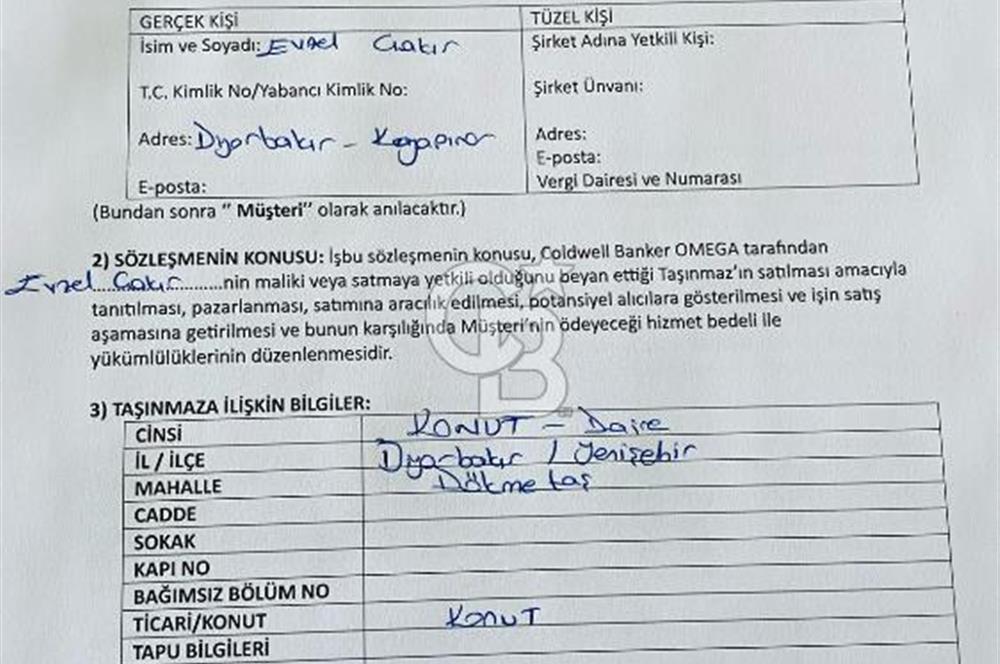 GERÇEK KİŞİ
TÜZEL KİŞİ
İsim ve Soyadı: Evsel Çakır
Şirket Adına Yetkili Kişi:
T.C. Kimlik No/Yabancı Kimlik No:
Şirket Ünvanı:
Adres: Diyarbakır - Kayapınar
Adres:
E-posta:
E-posta:
Vergi Dairesi ve Numarası
(Bundan sonra “ Müşteri” olarak anılacaktır.)
2) SÖZLEŞMENİN KONUSU: İşbu sözleşmenin konusu, Coldwell Banker OMEGA tarafından
Evsel Çakır nin maliki veya satmaya yetkili olduğunu beyan ettiği Taşınmaz’ın satılması amacıyla
tanıtılması, pazarlanması, satımına aracılık edilmesi, potansiyel alıcılara gösterilmesi ve işin satış
aşamasına getirilmesi ve bunun karşılığında Müşteri’nin ödeyeceği hizmet bedeli ile
yükümlülüklerinin düzenlenmesidir.
3) TAŞINMAZA İLİŞKİN BİLGİLER:
CİNSİ KONUT - Daire
İL / İLÇE Diyarbakır / Yenişehir
MAHALLE Dökmetaş
CADDE
SOKAK
KAPI NO
BAĞIMSIZ BÖLÜM NO
TİCARİ/KONUT KONUT
TAPU BİLGİLERİ